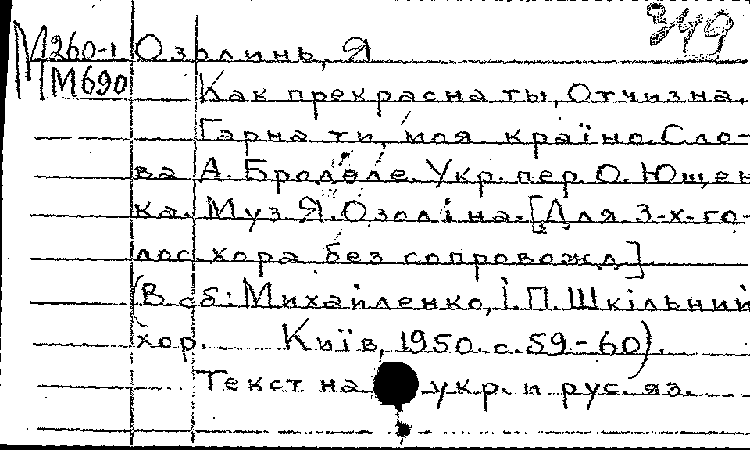 349
М260-1 Озолинь, Я
М690
Как прекрасна ты, Отчизна.
Гарна ти, моя країно. Сло-
ва А. Бродоле. Укр. пер. О. Ющен
ка. Муз Я. Озоліна. [Для 3-х-го-
лос хора без сопровожд]
(В сб: Михайленко, І. П. Шкільний
хор. Київ, 1950. с. 59-60).
Текст на укр. и рус. яз.